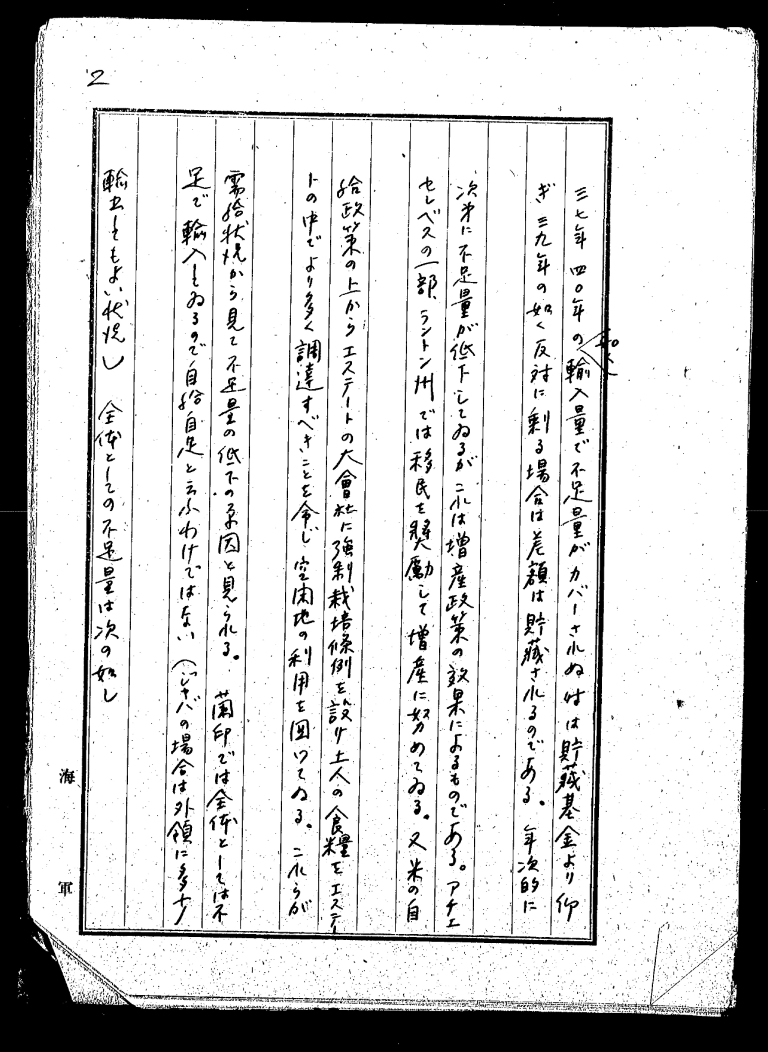 2
三七年四〇年の如く輸入量で不足量がカバーされぬ時は貯蔵基金より仰
ぎ三九年の如く反対に剰る場合は差額は貯蔵されるのである。年次的に
次第に不足量が低下してゐるがこれは増産政策の効果によるものである。アチエ
セレベスの一部、ラントン州では移民を奨励して増産に努めてゐる。又米の自
給政策の上からエステートの大會社に強制栽培條例を設け土人の食糧をエステー
トの中でより多く調達すべきことを命じ空閑地の利用を図つてゐる。これらが
需給状況から見て不足量の低下の原因と見られる。蘭印では全体としては不
足で輸入してゐるので自給自足と云ふわけではない(ジヤバの場合は外領に多少
輸出してもよい状况) 全体としての不足量は次の如し
海軍